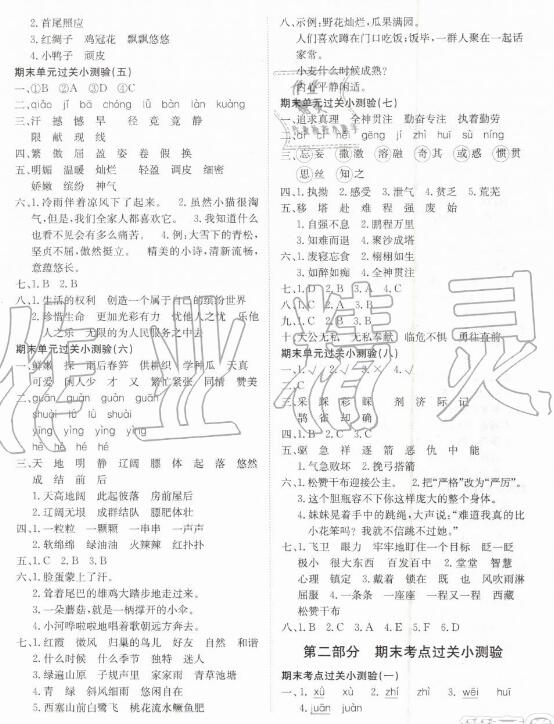 2.首尾照应
3.红绸子 鸡冠花 飘飘悠悠
4.小鸭子 顽皮
期末单元过关小测验(五)
一、①B ②A ③D ④C
二、qiāo jī bā chóng lǜ bàn làn kuàng
三、汗 撼 憾 旱 径 竟 竞 静
限 献 现 线
四、繁 傲 屈 盈 姿 卷 假 换
五、明媚 温暖 灿烂 轻盈 调皮 细密
娇嫩 缤纷 神气
六、1.冷雨伴着凉风下了起来。 2.虽然小猫很淘
气,但是,我们全家人都喜欢它。 3.我知道什么
也看不见会有多么痛苦。 4.例:大雪下的青松,
坚贞不屈,傲然挺立。 精美的小诗,清新流畅,
意蕴悠长。
七、1.B 2.C 3.B
八、1.生活的权利 创造一个属于自己的缤纷世界
2.珍惜生命 光彩有力 忧他人之忧 乐他
人之乐 无限的为人民服务之中去
期末单元过关小测验(六)
一、鲜嫩 探 雨后春笋 供耕织 学种瓜 天真
可爱 闲人少 才 又 繁忙紧张 同情 赞美
二、guàn guān guān guàn
shuài lǜ lǜ shuài
yīng yìng yìng yīng
hè hé hé hè
三、天 地 明 静 辽 阔 膘 体 起 落 悠 然
成 结 前 后
1.天高地阔 此起彼落 房前屋后
2.辽阔无垠 成群结队 膘肥体壮
四、1.一粒粒 一颗颗 一串串 一声声
2.软绵绵 绿油油 火辣辣 红扑扑
五、1.C 2.B 3.A
六、1.脸蛋蒙上了汗。
2.耸着尾巴的雄鸡大踏步地走过来。
3.一朵蘑菇,就是一柄撑开的小伞。
4.小河哗啦啦地唱着歌朝远方奔去。
七、1.红霞 微风 归巢的鸟儿 好友 自然 和谐
2.什么时候 什么季节 独特 迷人
3.绿遍山原 子规声里 家家雨 青草池塘
4.青 绿 斜风细雨 悠闲自在
5.西塞山前白鹭飞 桃花流水鳜鱼肥
八、示例:野花灿烂,瓜果满园。
人们喜欢蹲在门口吃饭;饭毕,一群人聚在一起话
家常。
小麦什么时候成熟?
内心平静闲适。
期末单元过关小测验(七)
一、追求真理 全神贯注 勤奋专注 执着勤劳
三、忘妄 撒激 溶融 奇其 或惑 惯贯
思丝 知之
四、1.执拗 2.感受 3.泄气 4.贫乏 5.荒芜
五、移 塔 赴 难 程 强 废 始
1.自强不息 2.鹏程万里
3.知难而退 4.聚沙成塔
六、1.废寝忘食 2.栩栩如生
3.如醉如痴 4.全神贯注
七、1.C 2.B 3.D 4.A
九、1.C 2.A 3.B
十、大公无私 无私奉献 临危不惧 勇往直前
期末单元过关小测验(八)
一、1.√ 2.√ 3.× 4.√
二、C
三、采 睬 彩 睬 剂 济 际 记
鹊 雀 却 确
四、1.B 2.C 3.A
五、驱 急 祥 逐 箭 恶 仇 中 能
1.气急败坏 2.挽弓搭箭
六、1.松赞干布迎接公主。 2.把“严格”改为“严厉”。
3.这个胆瓶容不下你这样庞大的整个身体。
4.妹妹晃着手中的跳绳,大声说:“难道我真的比
小花笨吗?我就不信跳不过她。”
七、1.飞卫 眼力 牢牢地盯住一个目标 眨一眨
极小 很大东西 百发百中 2.堂堂 智慧
心理 镇定 3.戴着 锁在 既 也 风吹雨淋
屈服 4.一条条 一座座 一程又一程 西藏
松赞干布
八、1.B 2.C 3.A 4.E 5.F 6.D
第二部分 期末考点过关小测验
期末考点过关小测验(一)
一、1.xū xù 2.zhí zhǐ 3.wēi huī
4.juān juàn